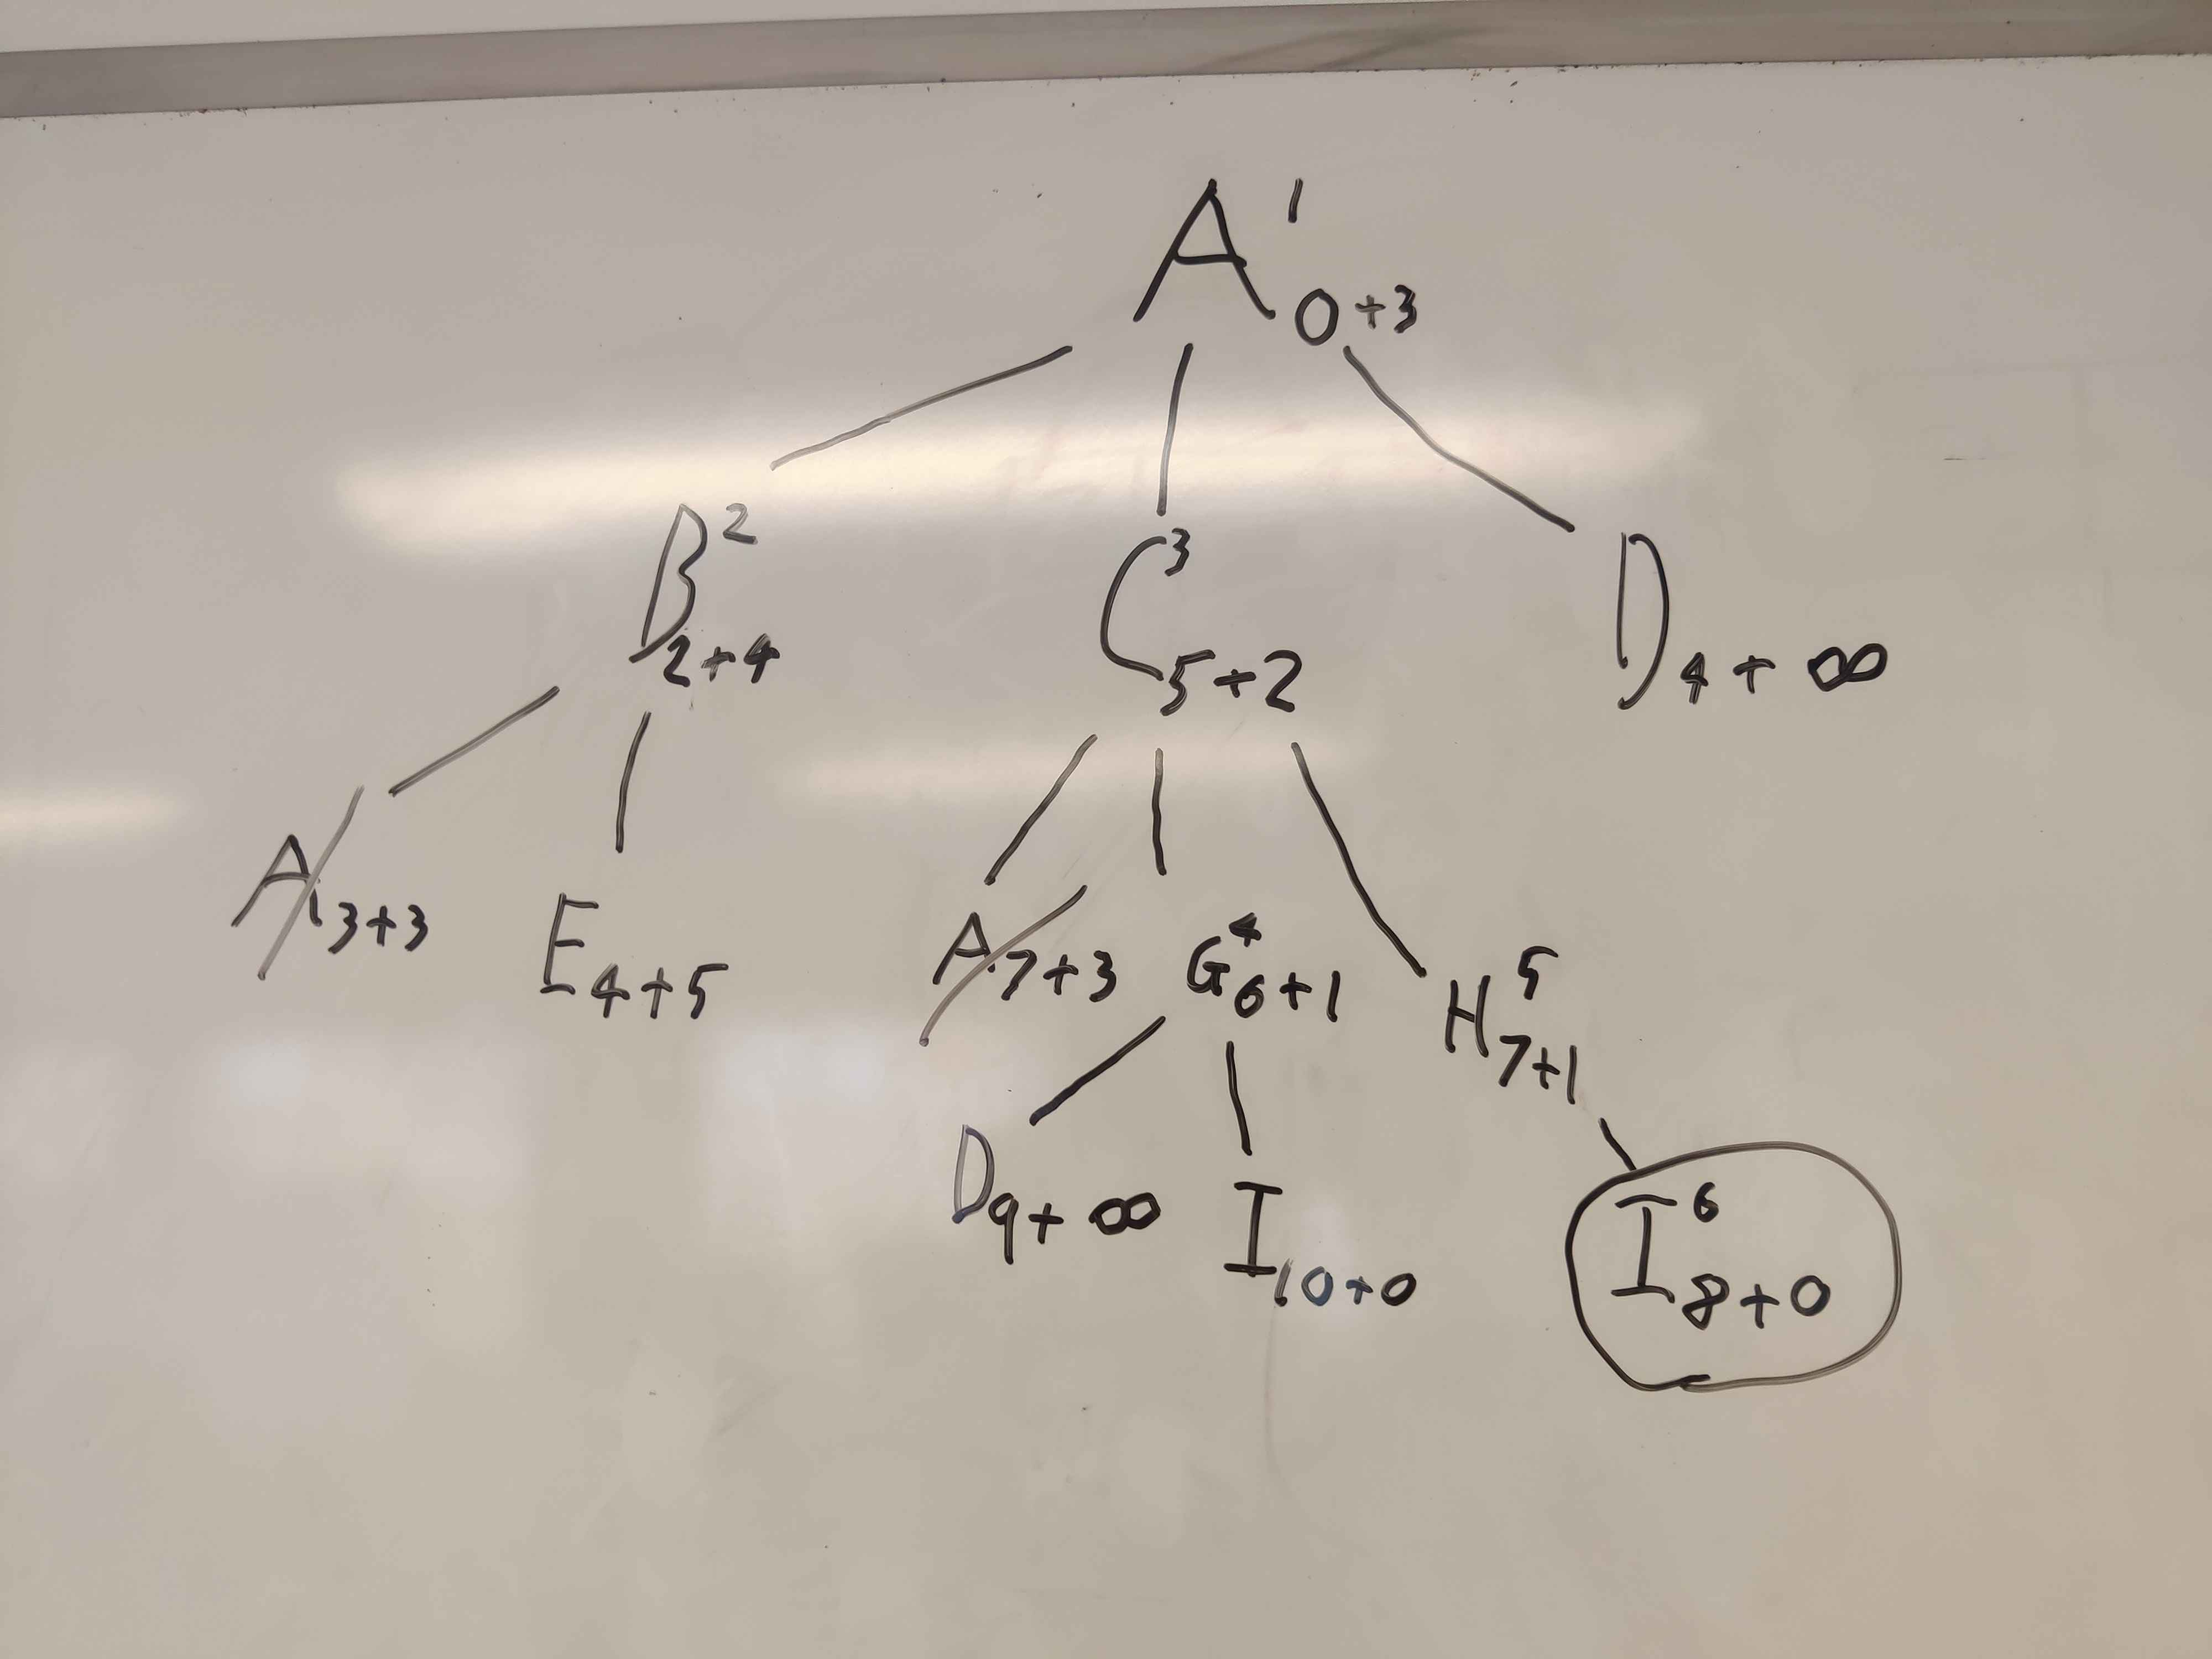 A¹₀₊₃
B²₂₊₄ C³₅₊₂ D₄₊∞
A₃₊₃ E₄₊₅ A₇₊₃ G⁴₆₊₁ H⁵₇₊₁
D₉₊∞ I₁₀₊₀ I⁶₈₊₀